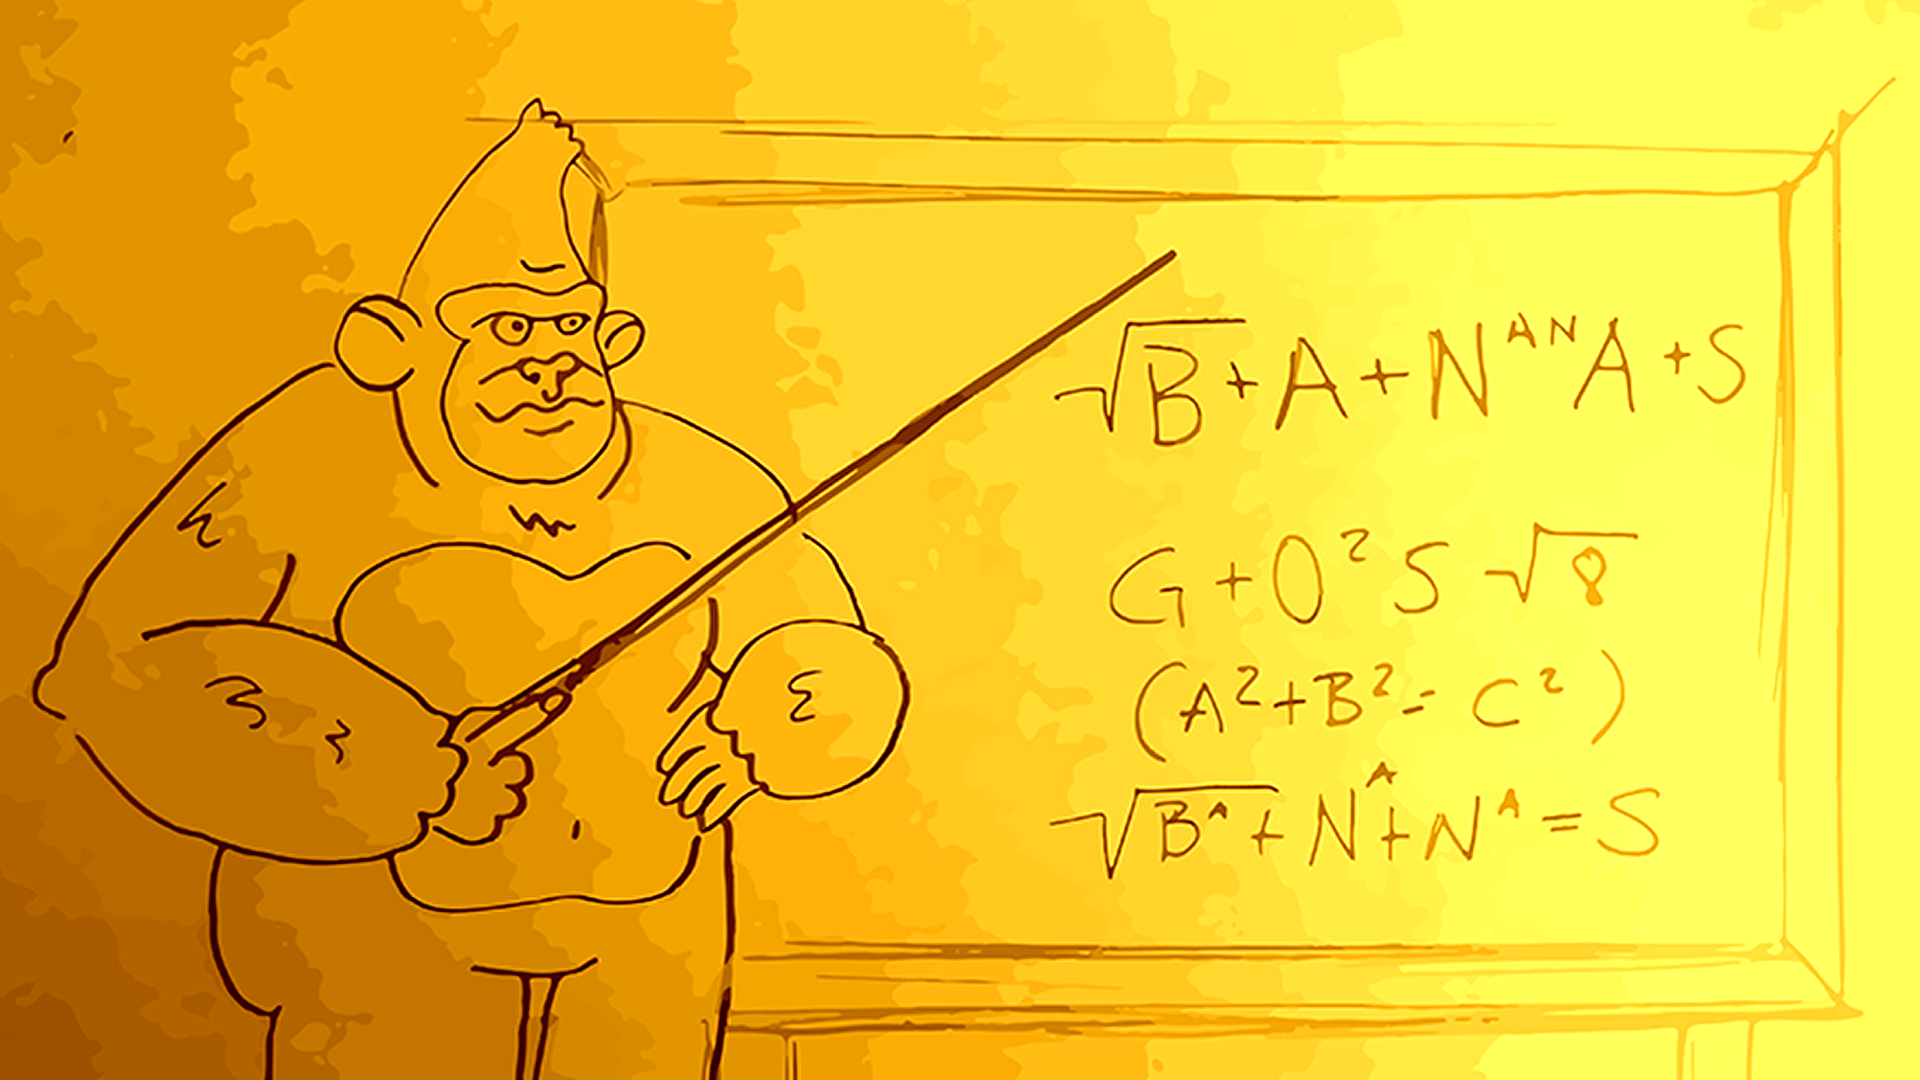 √B + A + N^AN A + S
G + O² S √8
(A² + B² = C²)
√B^A + N^A + N^A = S